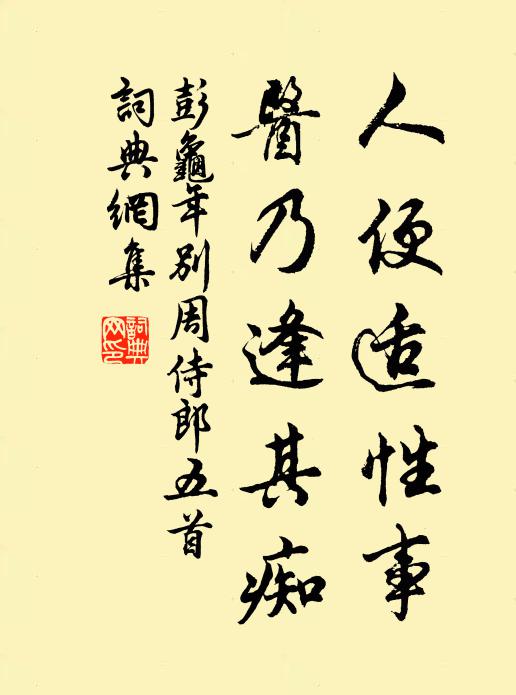 人便适性事
醫乃逢其痴
彭龜年别周侍郎五首
詞典網集
詞典網印